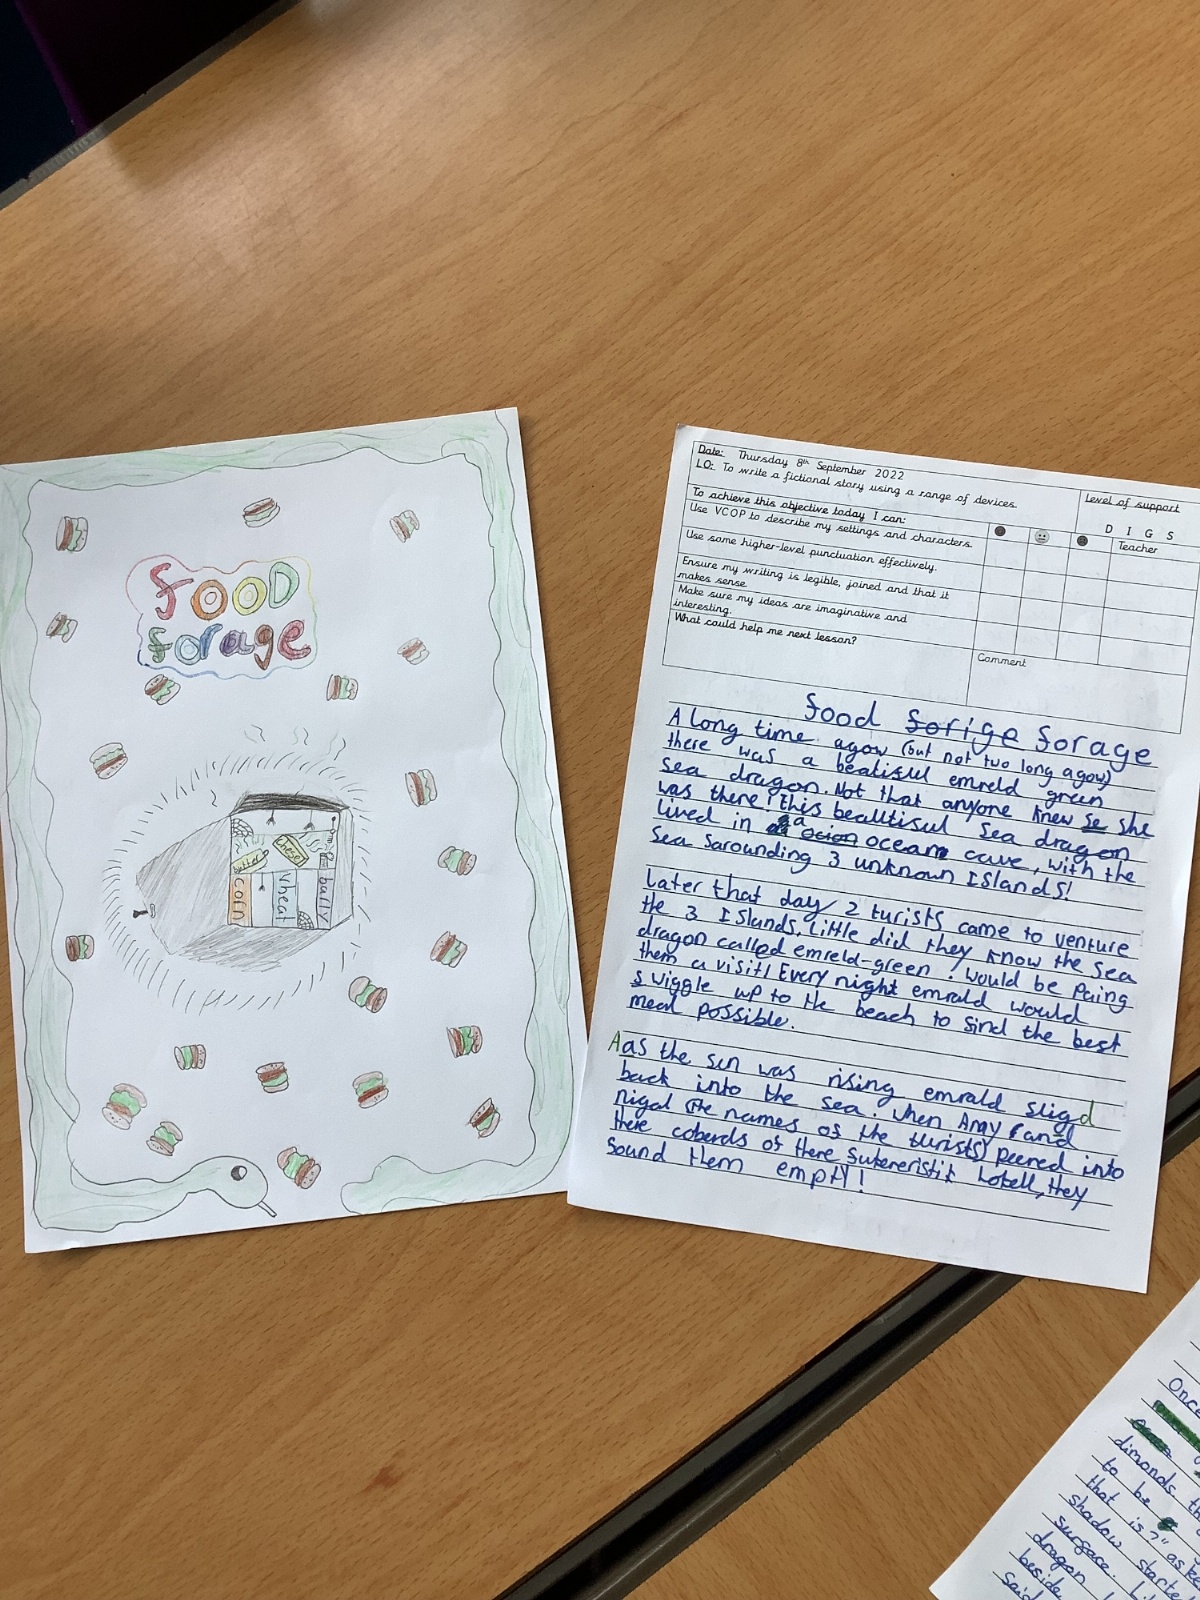 food
forage
butter
cheese
corn
wheat
barlly
Date: Thursday 8th September 2022
LO: To write a fictional story using a range of devices.
Level of support
To achieve this objective today I can:
D I G S
Use VCOP to describe my settings and characters.
Teacher
Use some higher-level punctuation effectively.
Ensure my writing is legible, joined and that it
makes sense.
Make sure my ideas are imaginative and
interesting.
What could help me next lesson?
Comment
food forige forage
A long time agow (but not two long agow)
there was a beatiful emreld green
sea dragon. Not that anyone knew se she
was there! this beautiful sea dragon
lived in a ocion ocean cave, with the
sea sarounding 3 unknown ISlands!
Later that day 2 turists came to venture
the 3 ISlands. Little did they know the sea
dragon called emreld-green. would be paing
them a visit! Every night emrald would
swiggle up to the beach to find the best
meal possible.
Aas the sun was rising emrald sligd
back into the sea. when Amy (and
nigal (the names of the turists) peered into
there coberds of there hotell, they
found them empty!
Once
dimonds. th
to be
that is?" aske
shadow starte
surface. Li
dragon
beside
Said